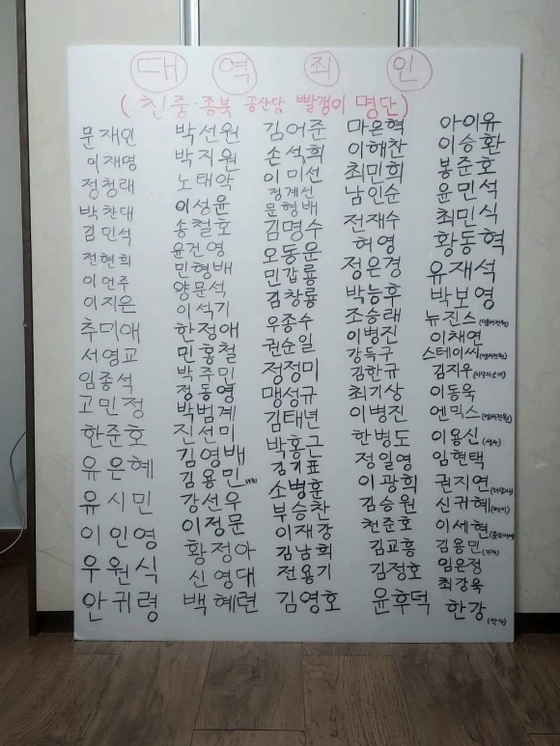 대 역 죄 인
(친중·종북 공산당 빨갱이 명단)
문재인
이재명
정청래
박찬대
김민석
전현희
이언주
이지은
추미애
서영교
임종석
고민정
한준호
유은혜
유시민
이인영
우원식
안귀령
박선원
박지원
노태악
이성윤
송철호
윤건영
민형배
양문석
이석기
한정애
민홍철
박주민
정동영
박범계
진선미
김영배
김용민
강선우
이정문
황정아
신영대
백혜련
김어준
손석희
이미선
정계선
문형배
김명수
오동운
민갑룡
김창룡
우종수
권순일
정정미
맹성규
김태년
박홍근
김기표
소병훈
부승찬
이재강
김남희
전용기
김영호
마은혁
이해찬
최민희
남인순
전재수
허영
정은경
박능후
조승래
이병진
강득구
김한규
최기상
이병진
한병도
정일영
이광희
김승원
천준호
김교흥
김정호
윤후덕
아이유
이승환
봉준호
윤민석
최민식
황동혁
유재석
박보영
뉴진스(멤버전원)
이채연
스테이씨(멤버전원)
김지우
이동욱
엔믹스(멤버전원)
이용신(성우)
임현택
권지연
신귀혜
이세현
김용민
임은정
최강욱
한강(작가)